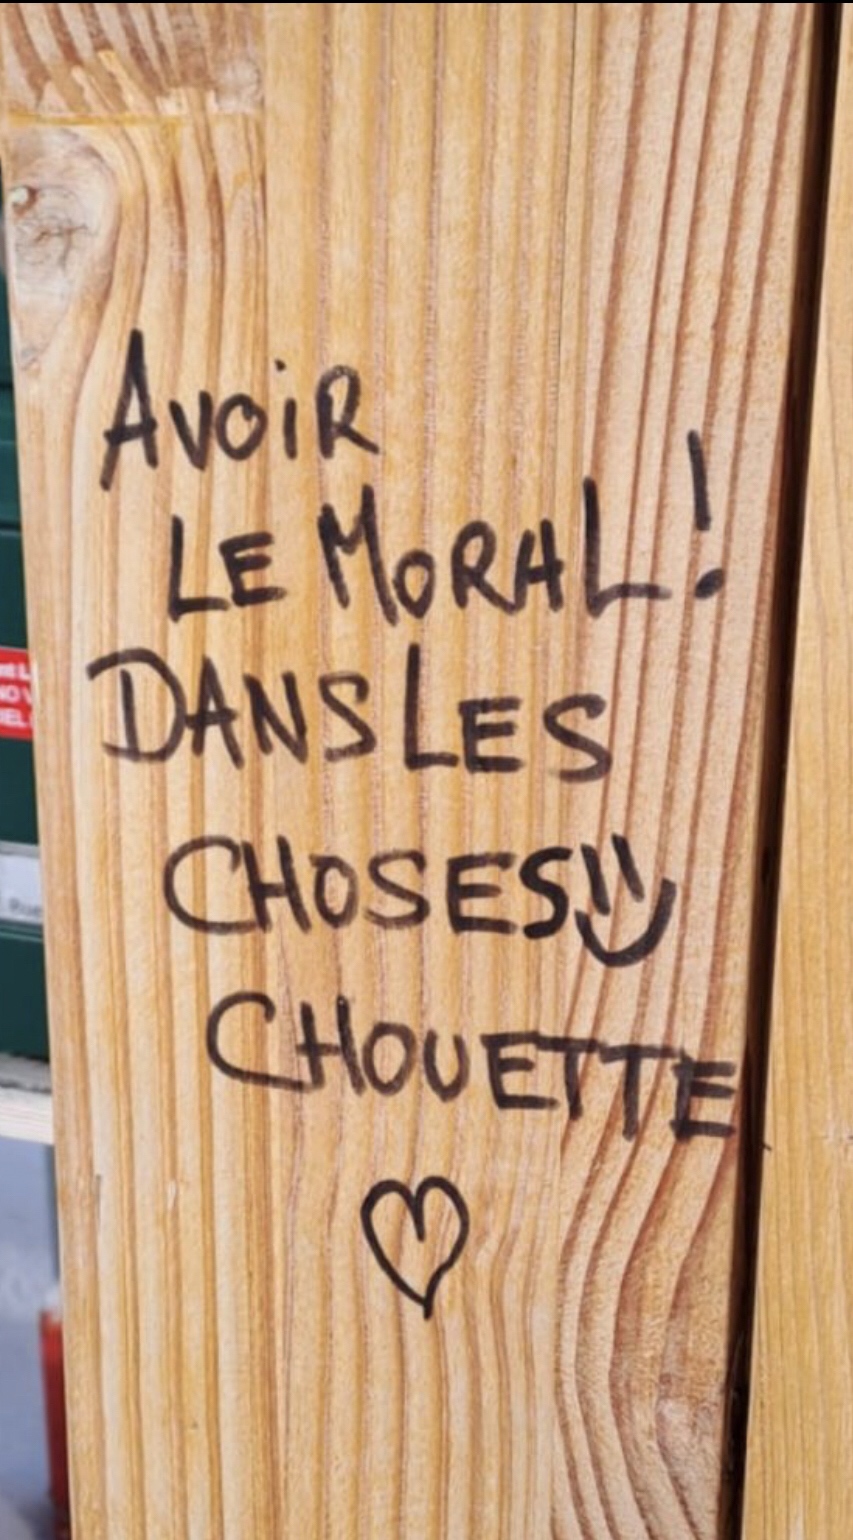 AVOiR
LE MORAL!
DANS LES
CHOSES
CHOUETTE